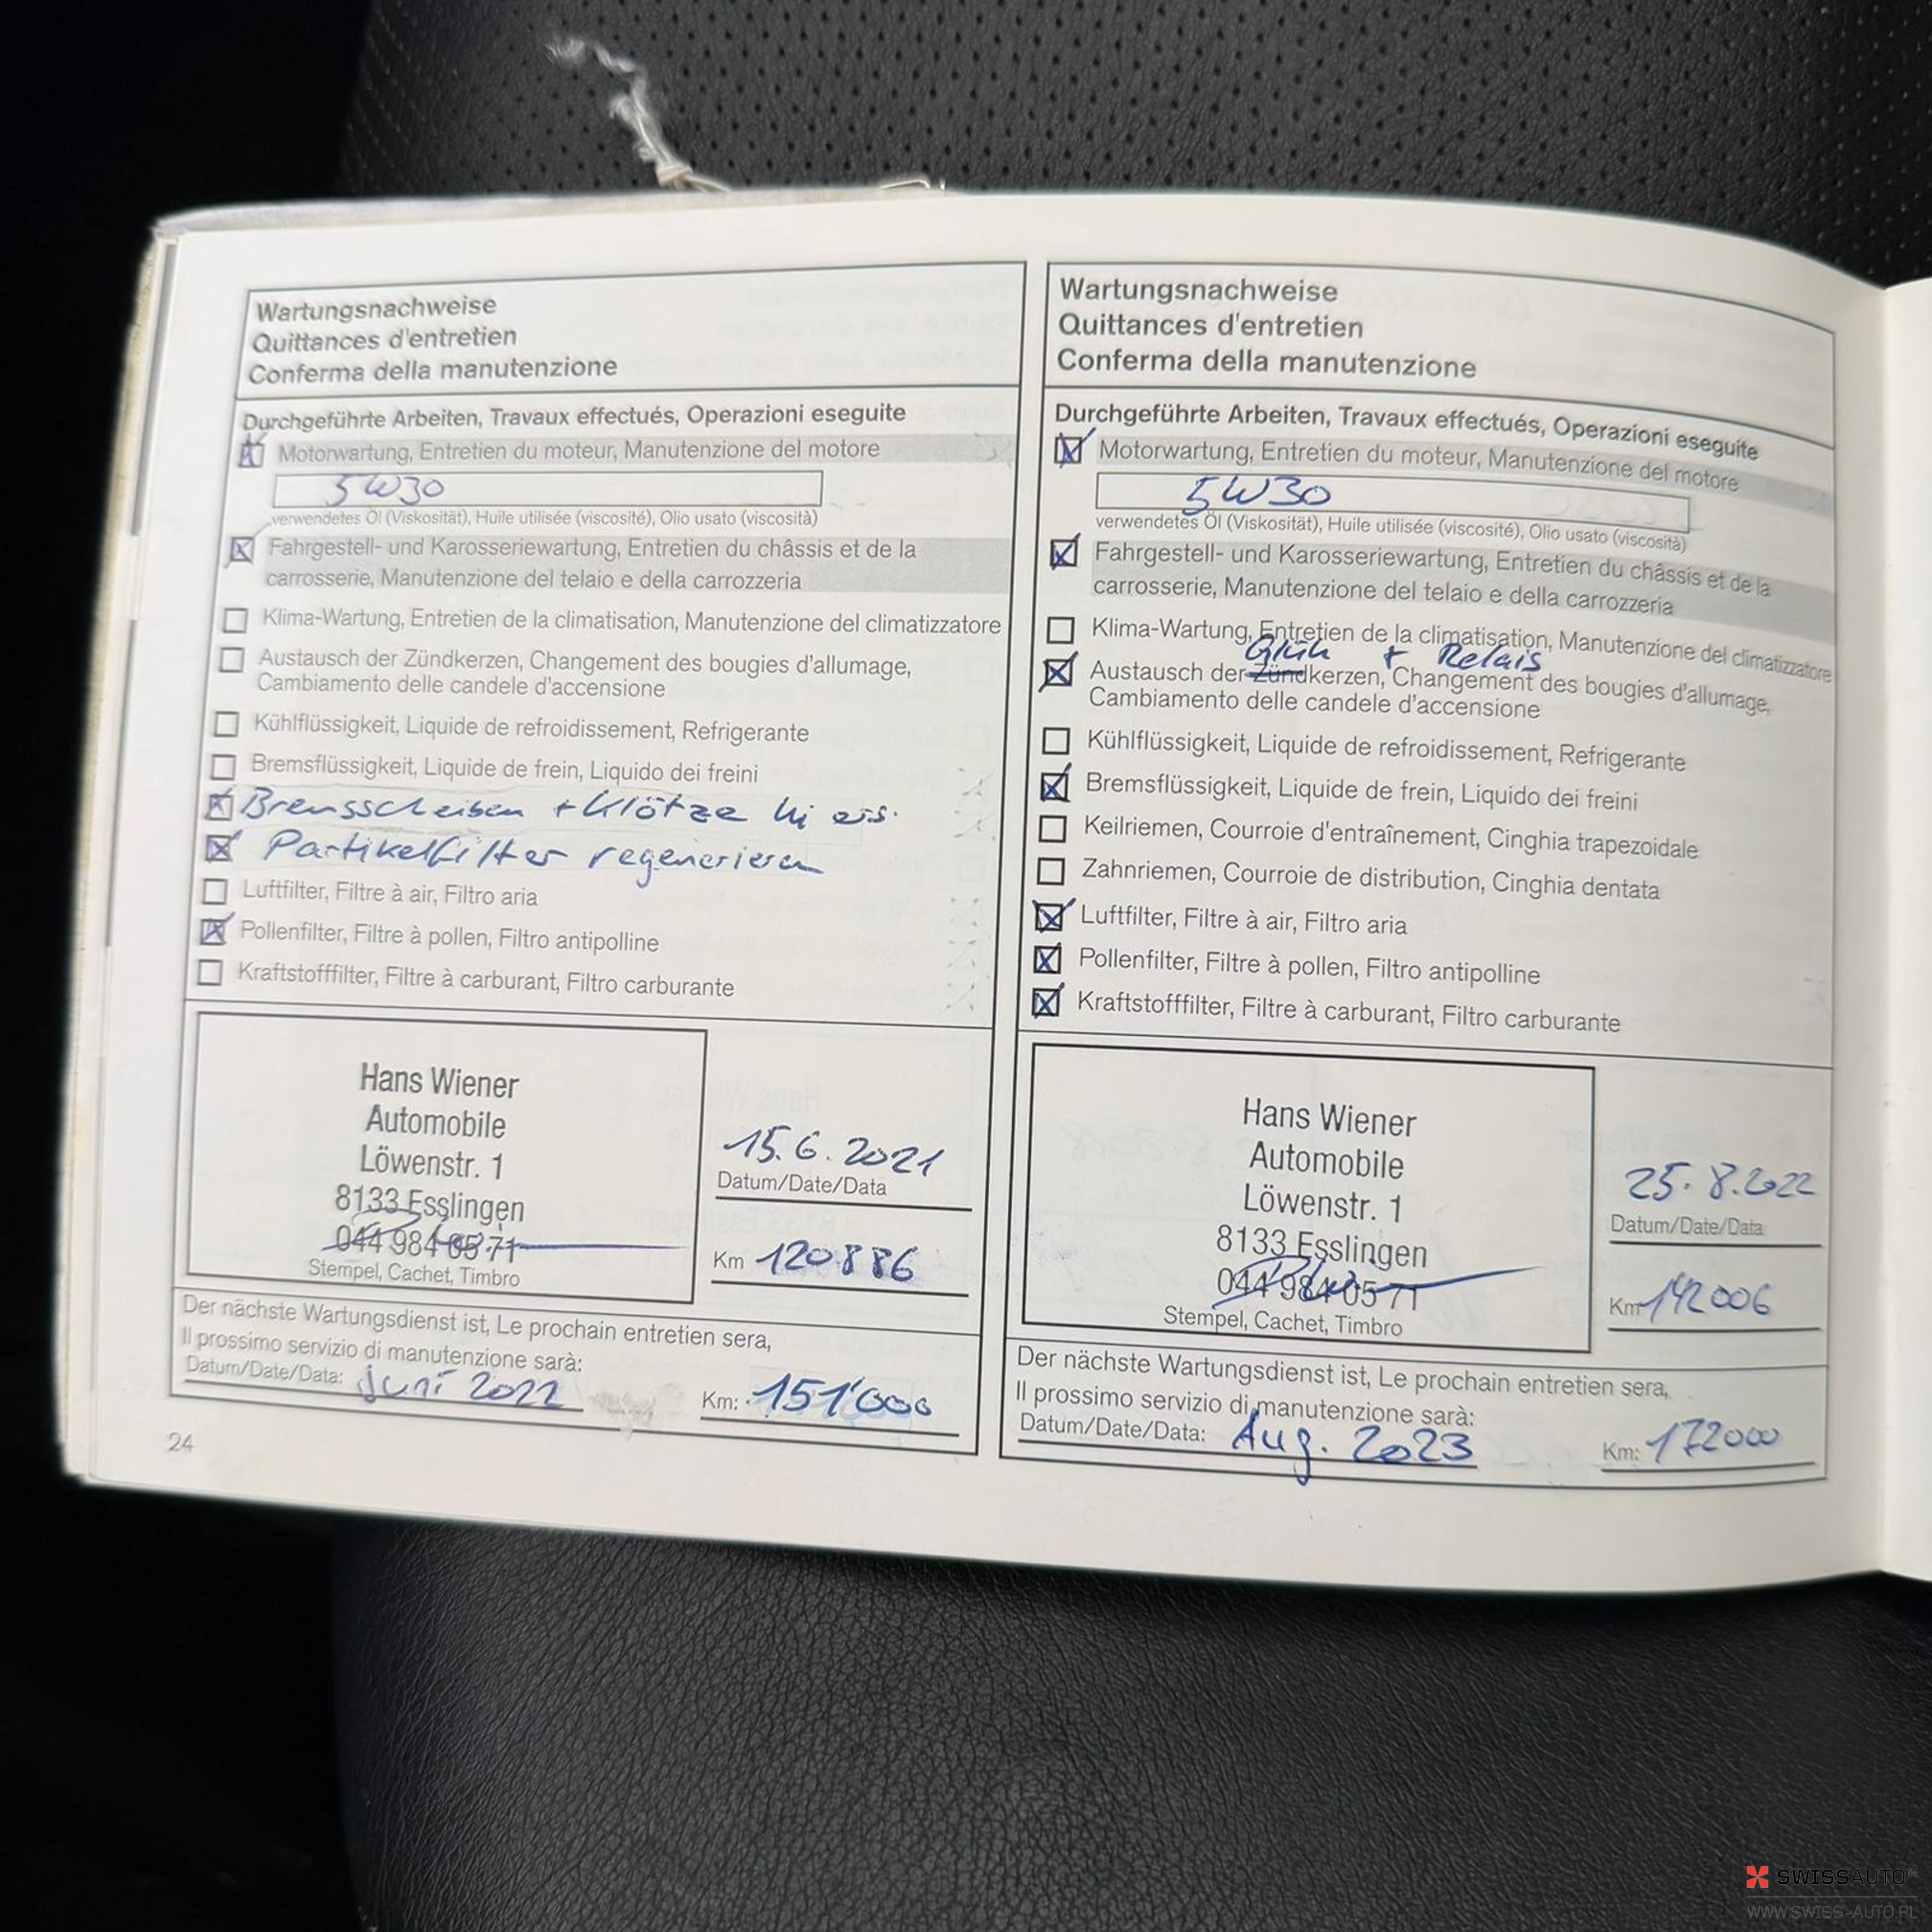 Wartungsnachweise
Quittances d'entretien
Conferma della manutenzione
Durchgeführte Arbeiten, Travaux effectués, Operazioni eseguite
Motorwartung, Entretien du moteur, Manutenzione del motore
5W30
verwendetes Öl (Viskosität), Huile utilisée (viscosité), Olio usato (viscosità)
Fahrgestell- und Karosseriewartung, Entretien du châssis et de la
carrosserie, Manutenzione del telaio e della carrozzeria
Klima-Wartung, Entretien de la climatisation, Manutenzione del climatizzatore
Austausch der Zündkerzen, Changement des bougies d'allumage,
Cambiamento delle candele d'accensione
Kühlflüssigkeit, Liquide de refroidissement, Refrigerante
Bremsflüssigkeit, Liquide de frein, Liquido dei freini
Bremsscheiben + Klötze hi ers.
Partikelfilter regenerieren
Luftfilter, Filtre à air, Filtro aria
Pollenfilter, Filtre à pollen, Filtro antipolline
Kraftstofffilter, Filtre à carburant, Filtro carburante
Hans Wiener
Automobile
Löwenstr. 1
8133 Esslingen
044 984 05 71
Stempel, Cachet, Timbro
15.6.2021
Datum/Date/Data
Km 120886
Der nächste Wartungsdienst ist, Le prochain entretien sera,
Il prossimo servizio di manutenzione sarà:
Datum/Date/Data: Juni 2022 Km: 151'000
24
Wartungsnachweise
Quittances d'entretien
Conferma della manutenzione
Durchgeführte Arbeiten, Travaux effectués, Operazioni eseguite
Motorwartung, Entretien du moteur, Manutenzione del motore
5W30
verwendetes Öl (Viskosität), Huile utilisée (viscosité), Olio usato (viscosità)
Fahrgestell- und Karosseriewartung, Entretien du châssis et de la
carrosserie, Manutenzione del telaio e della carrozzeria
Klima-Wartung, Entretien de la climatisation, Manutenzione del climatizzatore
Glüh + Relais
Austausch der Zündkerzen, Changement des bougies d'allumage,
Cambiamento delle candele d'accensione
Kühlflüssigkeit, Liquide de refroidissement, Refrigerante
Bremsflüssigkeit, Liquide de frein, Liquido dei freini
Keilriemen, Courroie d'entraînement, Cinghia trapezoidale
Zahnriemen, Courroie de distribution, Cinghia dentata
Luftfilter, Filtre à air, Filtro aria
Pollenfilter, Filtre à pollen, Filtro antipolline
Kraftstofffilter, Filtre à carburant, Filtro carburante
Hans Wiener
Automobile
Löwenstr. 1
8133 Esslingen
044 984 05 71
Stempel, Cachet, Timbro
25.8.2022
Datum/Date/Data
Km 142006
Der nächste Wartungsdienst ist, Le prochain entretien sera,
Il prossimo servizio di manutenzione sarà:
Datum/Date/Data: Aug. 2023 Km: 172000
SWISSAUTO
WWW.SWISS-AUTO.PL